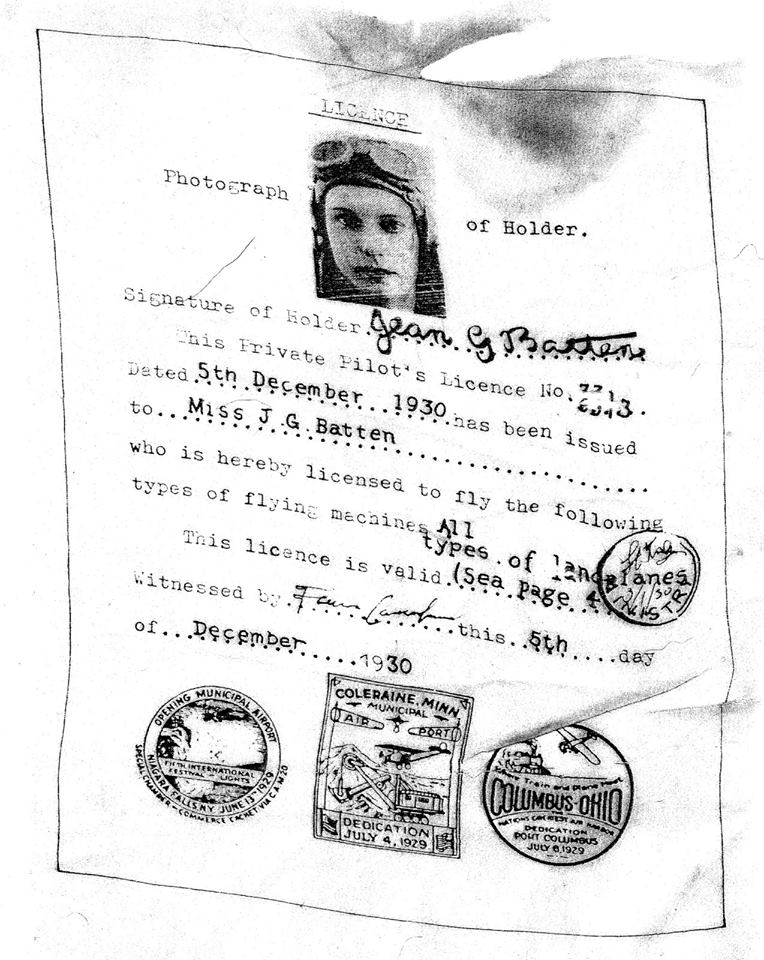 LICENCE
Photograph
of Holder.
Signature of Holder. Jean G Batten
This Private Pilot's Licence No.
Dated 5th December 1930 has been issued
to... Miss J G Batten
who is hereby licensed to fly the following
types of flying machines All
types of landplanes
This licence is valid. (Sea page 4
Witnessed by. this 5th day
of... December 1930
OPENING MUNICIPAL AIRPORT
FIFTH INTERNATIONAL
FESTIVAL OF LIGHTS
NIAGARA FALLS N.Y. JUNE 13TH 1929
SPECIAL CHAMBER OF COMMERCE CACHET VIA C.A.M 20
COLERAINE, MINN.
MUNICIPAL
AIR PORT
DEDICATION
JULY 4, 1929
Where Train and Plane Meet
COLUMBUS-OHIO
NATIONS GREATEST AIR HARBOR
DEDICATION
PORT COLUMBUS
JULY 8, 1929